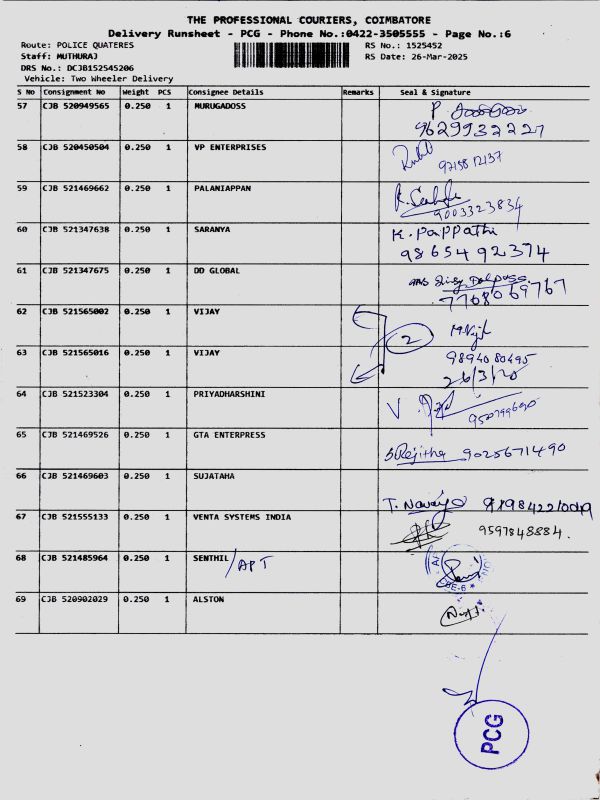 THE PROFESSIONAL COURIERS, COIMBATORE
Delivery Runsheet - PCG - Phone No.:0422-3505555 - Page No.:6
Route: POLICE QUATERES
RS No.: 1525452
Staff: MUTHURAJ
RS Date: 26-Mar-2025
DRS No.: DCJB152545206
Vehicle: Two Wheeler Delivery
S No Consignment No Weight PCS Consignee Details Remarks Seal & Signature
57 CJB 520949565 0.250 1 MURUGADOSS P
9629932227
58 CJB 520450504 0.250 1 VP ENTERPRISES
9715812137
59 CJB 521469662 0.250 1 PALANIAPPAN
9003323834
60 CJB 521347638 0.250 1 SARANYA K. Pappathi
9865492374
61 CJB 521347675 0.250 1 DD GLOBAL
7708069767
62 CJB 521565002 0.250 1 VIJAY
2
63 CJB 521565016 0.250 1 VIJAY 9894080495
26/3/20
64 CJB 521523304 0.250 1 PRIYADHARSHINI V
65 CJB 521469526 0.250 1 GTA ENTERPRESS
S. Rejitha 9025671490
66 CJB 521469603 0.250 1 SUJATAHA
T.
67 CJB 521555133 0.250 1 VENTA SYSTEMS INDIA 9597848884.
68 CJB 521485964 0.250 1 SENTHIL / APT
69 CJB 520902029 0.250 1 ALSTON
PCG